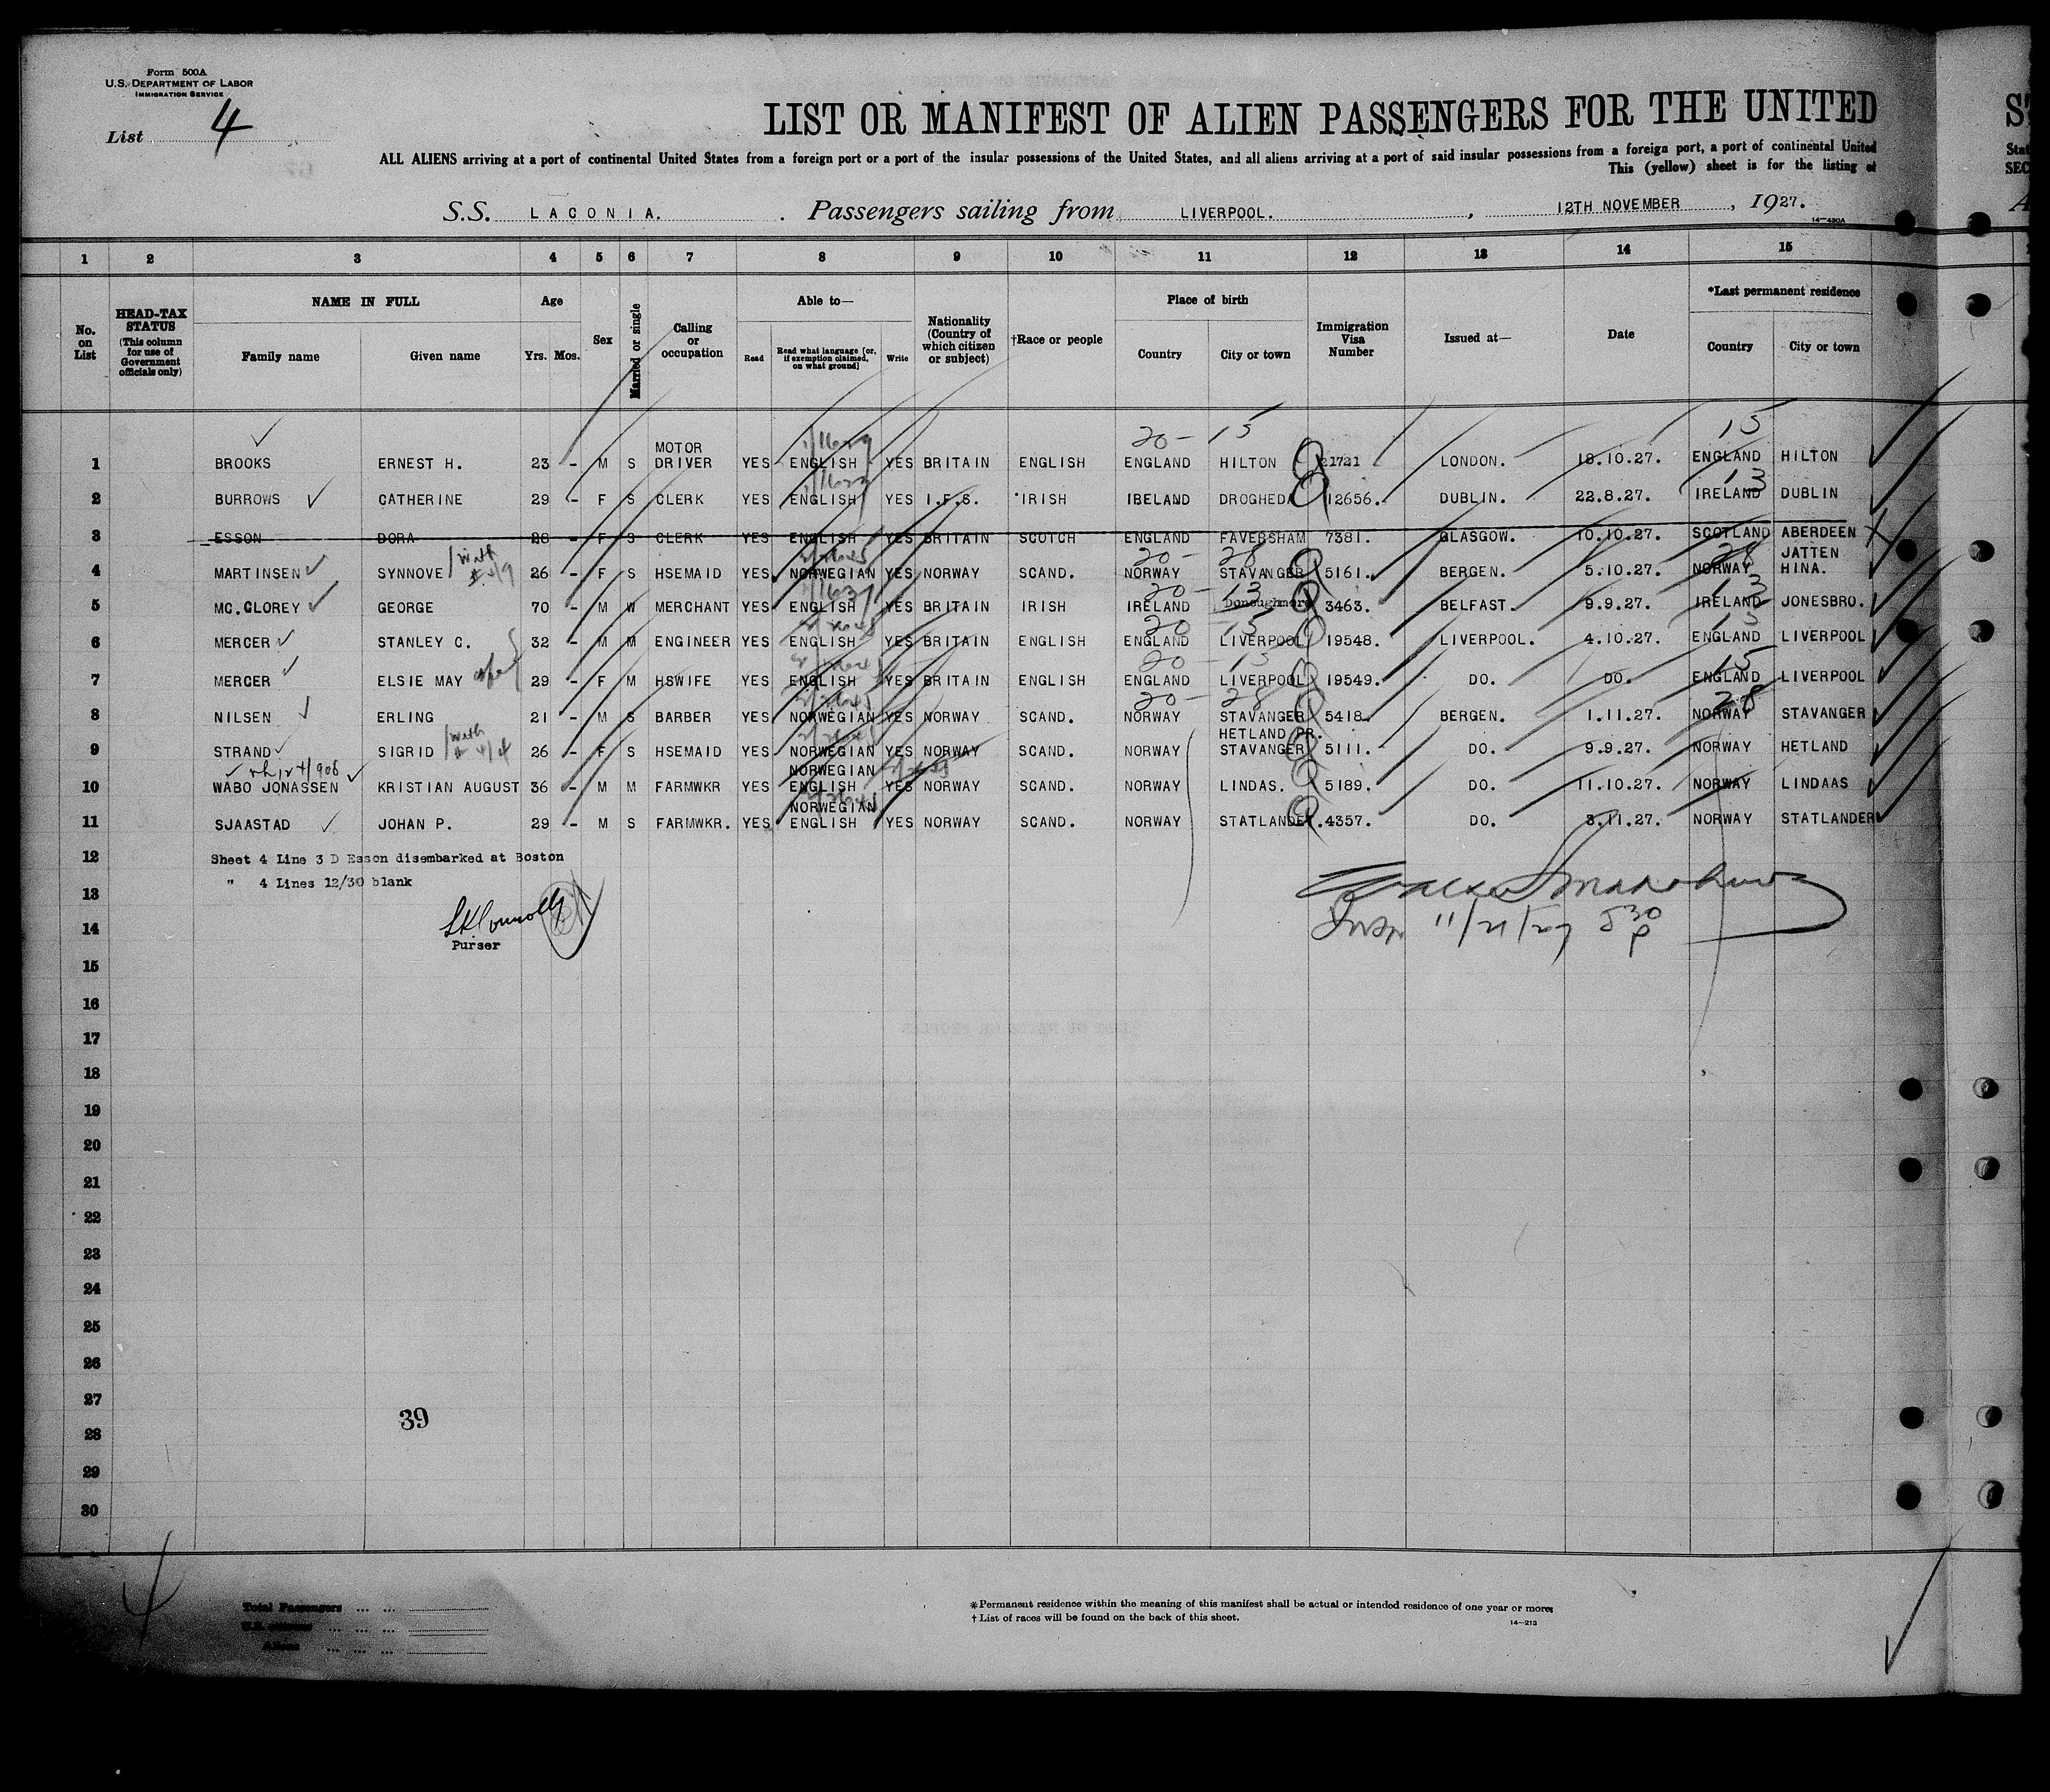 Form 500A
U.S. DEPARTMENT OF LABOR
IMMIGRATION SERVICE
List 4
LIST OR MANIFEST OF ALIEN PASSENGERS FOR THE UNITED
ALL ALIENS arriving at a port of continental United States from a foreign port or a port of the insular possessions of the United States, and all aliens arriving at a port of said insular possessions from a foreign port, a port of continental United
This (yellow) sheet is for the listing of
S.S. LACONIA. . Passengers sailing from LIVERPOOL. , 12TH NOVEMBER , 1927.
14-430A
1 2 3 4 5 6 7 8 9 10 11 12 13 14 15
No. on List
HEAD-TAX STATUS (This column for use of Government officials only)
NAME IN FULL Family name Given name
Age Yrs. Mos.
Sex
Married or single
Calling or occupation
Able to— Read Read what language [or, if exemption claimed, on what ground] Write
Nationality (Country of which citizen or subject)
†Race or people
Place of birth Country City or town
Immigration Visa Number
Issued at—
Date
*Last permanent residence Country City or town
20 - 15 15
1 BROOKS ERNEST H. 23 - M S MOTOR DRIVER YES ENGLISH YES BRITAIN ENGLISH ENGLAND HILTON 21721 LONDON. 18.10.27. ENGLAND HILTON
13
2 BURROWS CATHERINE 29 - F S CLERK YES ENGLISH YES I.F.S. IRISH IRELAND DROGHEDA 12656. DUBLIN. 22.8.27. IRELAND DUBLIN
3 ESSON DORA 28 - F S CLERK YES ENGLISH YES BRITAIN SCOTCH ENGLAND FAVERSHAM 7381. GLASGOW. 10.10.27. SCOTLAND ABERDEEN
with 20 - 28 28
4 MARTINSEN SYNNOVE 26 - F S HSEMAID YES NORWEGIAN YES NORWAY SCAND. NORWAY STAVANGER 5161. BERGEN. 5.10.27. NORWAY JATTEN HINA.
20 - 13 13
5 MC.CLOREY GEORGE 70 - M W MERCHANT YES ENGLISH YES BRITAIN IRISH IRELAND Donoughmore 3463. BELFAST. 9.9.27. IRELAND JONESBRO.
20 - 15 15
6 MERCER STANLEY C. 32 - M M ENGINEER YES ENGLISH YES BRITAIN ENGLISH ENGLAND LIVERPOOL 19548. LIVERPOOL. 4.10.27. ENGLAND LIVERPOOL
20 - 15 15
7 MERCER ELSIE MAY 29 - F M HSWIFE YES ENGLISH YES BRITAIN ENGLISH ENGLAND LIVERPOOL 19549. DO. DO. ENGLAND LIVERPOOL
20 - 28 28
8 NILSEN ERLING 21 - M S BARBER YES NORWEGIAN YES NORWAY SCAND. NORWAY STAVANGER 5418. BERGEN. 1.11.27. NORWAY STAVANGER
with
9 STRAND SIGRID 26 - F S HSEMAID YES NORWEGIAN YES NORWAY SCAND. NORWAY HETLAND PR. STAVANGER 5111. DO. 9.9.27. NORWAY HETLAND
10 WABO JONASSEN KRISTIAN AUGUST 36 - M M FARMWKR YES NORWEGIAN ENGLISH YES NORWAY SCAND. NORWAY LINDAS. 5189. DO. 11.10.27. NORWAY LINDAAS
11 SJAASTAD JOHAN P. 29 - M S FARMWKR. YES NORWEGIAN ENGLISH YES NORWAY SCAND. NORWAY STATLANDET. 4357. DO. 3.11.27. NORWAY STATLANDER
12 Sheet 4 Line 3 D Esson disembarked at Boston
" 4 Lines 12/30 blank
13
14
Purser
Insp 11/21/27 5 30 P
15
16
17
18
19
20
21
22
23
24
25
26
27
39
28
29
30
4
Total Passengers ... ...
U.S. citizens ... ... ...
Aliens ... ... ...
*Permanent residence within the meaning of this manifest shall be actual or intended residence of one year or more.
† List of races will be found on the back of this sheet.
14-213